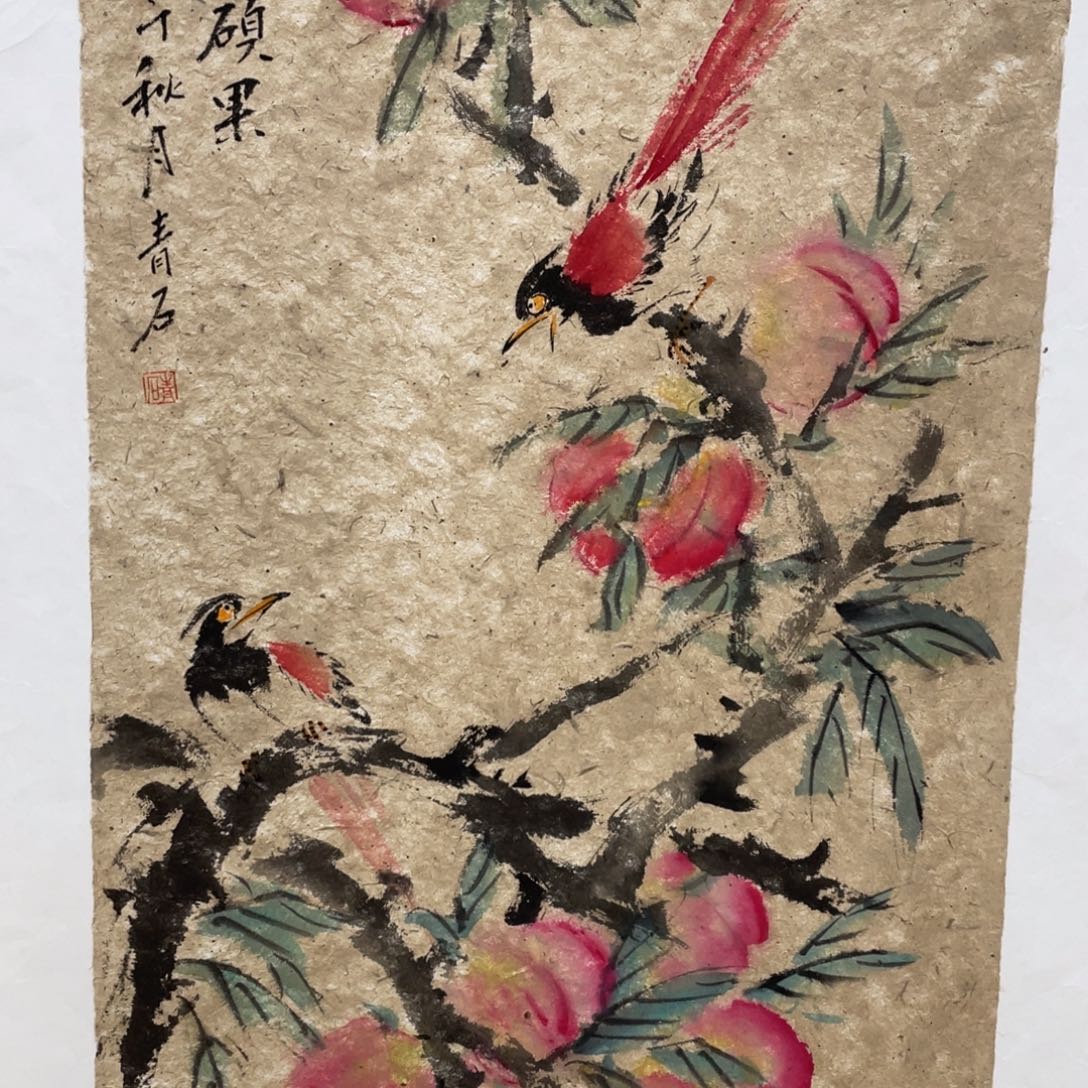 硕果
秋月青石